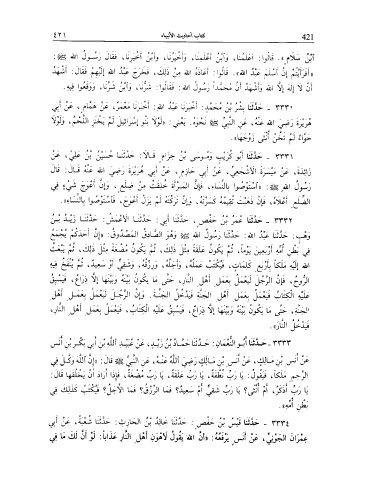 ٤٢١ كتاب أحاديث الأنبياء 421
ابْنُ سَلَامٍ». قَالُوا: أَعْلَمُنَا، وَابْنُ أَعْلَمِنَا، وَأَخْيَرُنَا، وَابْنُ أَخْيَرِنَا، فَقَالَ رَسُولُ اللهِ ﷺ:
«أَفَرَأَيْتُمْ إِنْ أَسْلَمَ عَبْدُ اللهِ». قَالُوا: أَعَاذَهُ اللهُ مِنْ ذَلِكَ، فَخَرَجَ عَبْدُ اللهِ إِلَيْهِمْ فَقَالَ: أَشْهَدُ
أَنْ لَا إِلَهَ إِلَّا اللهُ وَأَشْهَدُ أَنَّ مُحَمَّداً رَسُولُ اللهِ فَقَالُوا: شَرُّنَا، وَابْنُ شَرِّنَا، وَوَقَعُوا فِيهِ.
٣٣٣٠ - حَدَّثَنَا بِشْرُ بْنُ مُحَمَّدٍ: أَخْبَرَنَا عَبْدُ اللهِ: أَخْبَرَنَا مَعْمَرٌ، عَنْ هَمَّامٍ، عَنْ أَبِي
هُرَيْرَةَ رَضِيَ اللهُ عَنْهُ، عَنِ النَّبِيِّ ﷺ نَحْوَهُ. يَعْنِي: «لَوْلَا بَنُو إِسْرَائِيلَ لَمْ يَخْنَزِ اللَّحْمُ، وَلَوْلَا
حَوَّاءُ لَمْ تَخُنْ أُنْثَى زَوْجَهَا».
٣٣٣١ - حَدَّثَنَا أَبُو كُرَيْبٍ وَمُوسَى بْنُ حِزَامٍ قَالَا: حَدَّثَنَا حُسَيْنُ بْنُ عَلِيٍّ، عَنْ
زَائِدَةَ، عَنْ مَيْسَرَةَ الْأَشْجَعِيِّ، عَنْ أَبِي حَازِمٍ، عَنْ أَبِي هُرَيْرَةَ رَضِيَ اللهُ عَنْهُ قَالَ: قَالَ
رَسُولُ اللهِ ﷺ: «اسْتَوْصُوا بِالنِّسَاءِ، فَإِنَّ الْمَرْأَةَ خُلِقَتْ مِنْ ضِلَعٍ، وَإِنَّ أَعْوَجَ شَيْءٍ فِي
الضِّلَعِ أَعْلَاهُ، فَإِنْ ذَهَبْتَ تُقِيمُهُ كَسَرْتَهُ، وَإِنْ تَرَكْتَهُ لَمْ يَزَلْ أَعْوَجَ، فَاسْتَوْصُوا بِالنِّسَاءِ».
٣٣٣٢ - حَدَّثَنَا عُمَرُ بْنُ حَفْصٍ: حَدَّثَنَا أَبِي: حَدَّثَنَا الْأَعْمَشُ: حَدَّثَنَا زَيْدُ بْنُ
وَهْبٍ: حَدَّثَنَا عَبْدُ اللهِ: حَدَّثَنَا رَسُولُ اللهِ ﷺ وَهُوَ الصَّادِقُ الْمَصْدُوقُ: «إِنَّ أَحَدَكُمْ يُجْمَعُ
فِي بَطْنِ أُمِّهِ أَرْبَعِينَ يَوْماً، ثُمَّ يَكُونُ عَلَقَةً مِثْلَ ذَلِكَ، ثُمَّ يَكُونُ مُضْغَةً مِثْلَ ذَلِكَ، ثُمَّ يَبْعَثُ
اللهُ إِلَيْهِ مَلَكاً بِأَرْبَعِ كَلِمَاتٍ، فَيُكْتَبُ عَمَلُهُ، وَأَجَلُهُ، وَرِزْقُهُ، وَشَقِيٌّ أَوْ سَعِيدٌ، ثُمَّ يُنْفَخُ فِيهِ
الرُّوحُ، فَإِنَّ الرَّجُلَ لَيَعْمَلُ بِعَمَلِ أَهْلِ النَّارِ، حَتَّى مَا يَكُونُ بَيْنَهُ وَبَيْنَهَا إِلَّا ذِرَاعٌ، فَيَسْبِقُ
عَلَيْهِ الْكِتَابُ فَيَعْمَلُ بِعَمَلِ أَهْلِ الْجَنَّةِ فَيَدْخُلُ الْجَنَّةَ. وَإِنَّ الرَّجُلَ لَيَعْمَلُ بِعَمَلِ أَهْلِ
الْجَنَّةِ، حَتَّى مَا يَكُونُ بَيْنَهُ وَبَيْنَهَا إِلَّا ذِرَاعٌ، فَيَسْبِقُ عَلَيْهِ الْكِتَابُ، فَيَعْمَلُ بِعَمَلِ أَهْلِ النَّارِ
فَيَدْخُلُ النَّارَ».
٣٣٣٣ - حَدَّثَنَا أَبُو النُّعْمَانِ: حَدَّثَنَا حَمَّادُ بْنُ زَيْدٍ، عَنْ عُبَيْدِ اللهِ بْنِ أَبِي بَكْرِ بْنِ أَنَسٍ
عَنْ أَنَسِ بْنِ مَالِكٍ، عَنْ أَنَسِ بْنِ مَالِكٍ رَضِيَ اللهُ عَنْهُ، عَنِ النَّبِيِّ ﷺ قَالَ: «إِنَّ اللهَ وَكَّلَ فِي
الرَّحِمِ مَلَكاً، فَيَقُولُ: يَا رَبِّ نُطْفَةٌ، يَا رَبِّ عَلَقَةٌ، يَا رَبِّ مُضْغَةٌ، فَإِذَا أَرَادَ أَنْ يَخْلُقَهَا قَالَ:
يَا رَبِّ أَذَكَرٌ، أَمْ أُنْثَى؟ يَا رَبِّ شَقِيٌّ أَمْ سَعِيدٌ؟ فَمَا الرِّزْقُ؟ فَمَا الْأَجَلُ؟ فَيُكْتَبُ كَذَلِكَ فِي
بَطْنِ أُمِّهِ».
٣٣٣٤ - حَدَّثَنَا قَيْسُ بْنُ حَفْصٍ: حَدَّثَنَا خَالِدُ بْنُ الْحَارِثِ: حَدَّثَنَا شُعْبَةُ، عَنْ أَبِي
عِمْرَانَ الْجَوْنِيِّ، عَنْ أَنَسٍ يَرْفَعُهُ: «أَنَّ اللهَ يَقُولُ لِأَهْوَنِ أَهْلِ النَّارِ عَذَاباً: لَوْ أَنَّ لَكَ مَا فِي